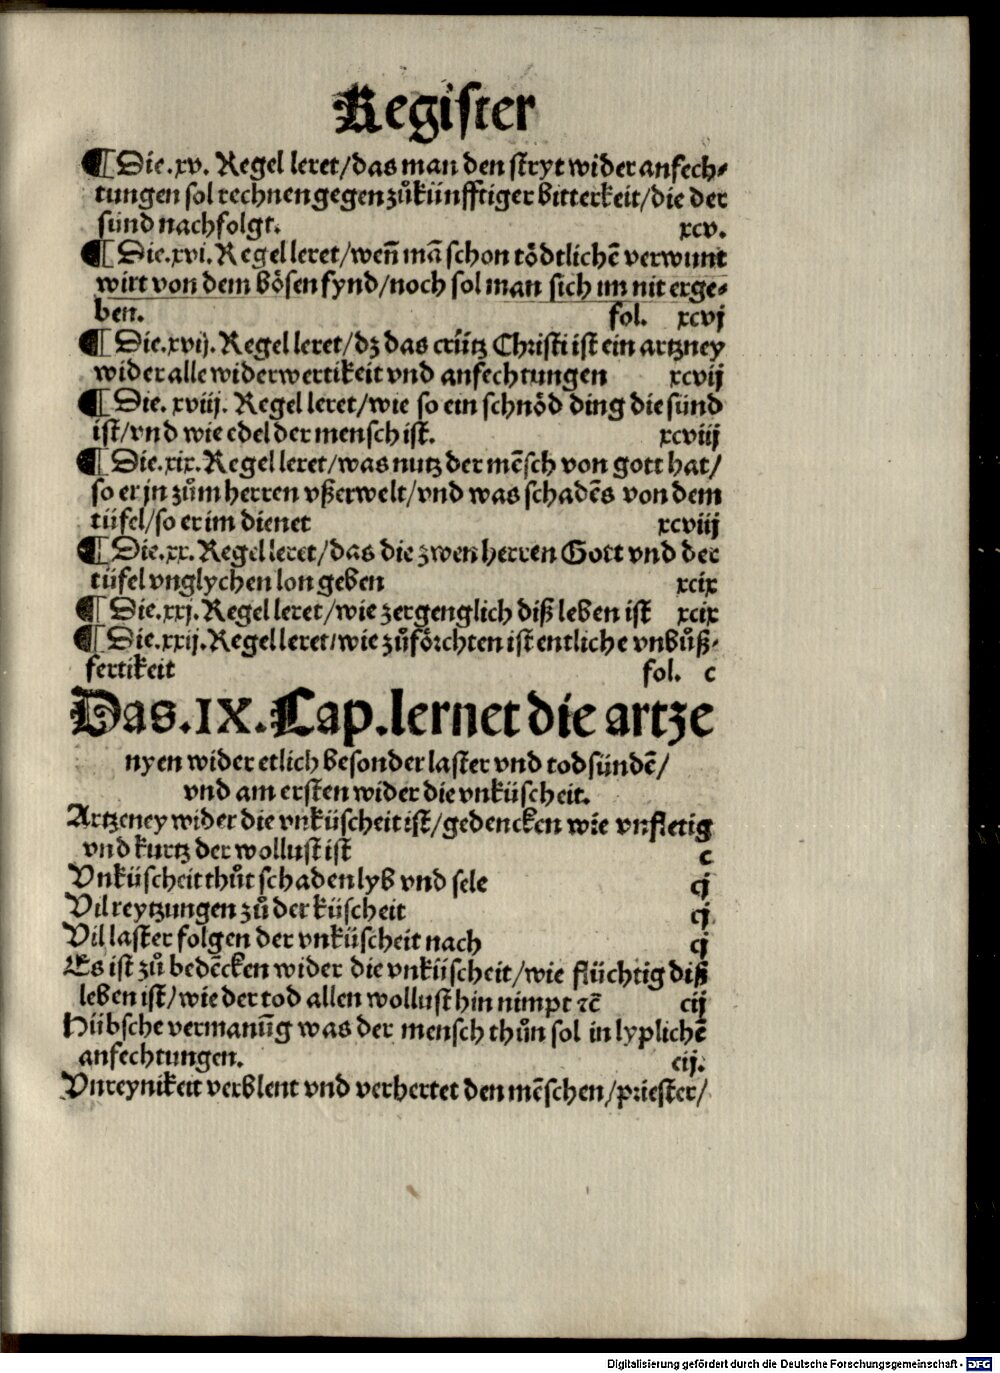 Register
¶ Die.xv. Regel leret/das man den stryt wider anfech⸗
tungen sol rechnen gegen zůkünfftiger bitterkeit/die der
sünd nachfolgt. xcv.
¶ Die.xvi. Regel leret/weñ mā schon tödtlichē verwunt
wirt von dem bösen fynd/noch sol man sich im nit erge⸗
ben. fol. xcvj
¶ Die.xvij. Regel leret/dz das crütz Christi ist ein artzney
wider alle widerwertikeit vnd anfechtungen xcvij
¶ Die. xviij. Regel leret/wie so ein schnöd ding die sünd
ist/vnd wie edel der mensch ist. xcviij
¶ Die.xix. Regel leret/was nutz der mēsch von gott hat/
so er jn zům herren vßerwelt/vnd was schadēs von dem
tüfel/so er im dienet xcviij
¶ Die.xx. Regel leret/das die zwen herren Gott vnd der
tüfel vnglychen lon geben xcix
¶ Die.xxj. Regel leret/wie zergenglich diß leben ist xcix
¶ Die.xxij. Regel leret/wie zůförchten ist entliche vnbůß⸗
fertikeit fol. c
Das.IX.Cap.lernet die artze
nyen wider etlich besonder laster vnd todsündē/
vnd am ersten wider die vnküscheit.
Artzeney wider die vnküscheit ist/gedencken wie vnfletig
vnd kurtz der wollust ist c
Vnküscheit thůt schaden lyb vnd sele cj
Vil reytzungen zů der küscheit cj
Vil laster folgen der vnküscheit nach cj
Es ist zů bedēcken wider die vnküscheit/wie flüchtig diß
leben ist/wie der tod allen wollust hin nimpt ⁊c̄ cij
Hübsche vermanūg was der mensch thůn sol in lyplichē
anfechtungen. cij.
Vnreynikeit verblent vnd verhertet den mēschen/priester/
Digitalisierung gefördert durch die Deutsche Forschungsgemeinschaft - DFG